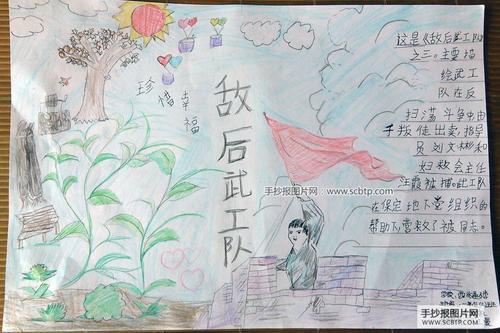 珍惜幸福
敌后武工队
这是《敌后武工队》
之三。主要描
绘武工
队在反
扫荡斗争由
于叛徒出卖,指导
员刘文彬和
妇救会主任
汪霞被捕。武工队
在保定地下党组织的
帮助下营救了被同志。
手抄报图片网:www.scbtp.com
手抄报图片网
WWW.SCBTP.COM